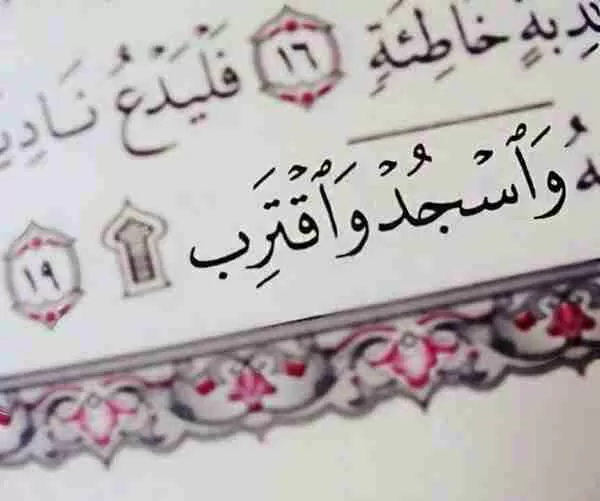 خَاطِئَةٍ ١٦ فَلْيَدْعُ
وَٱسْجُدْ وَٱقْتَرِب ۩ ١٩